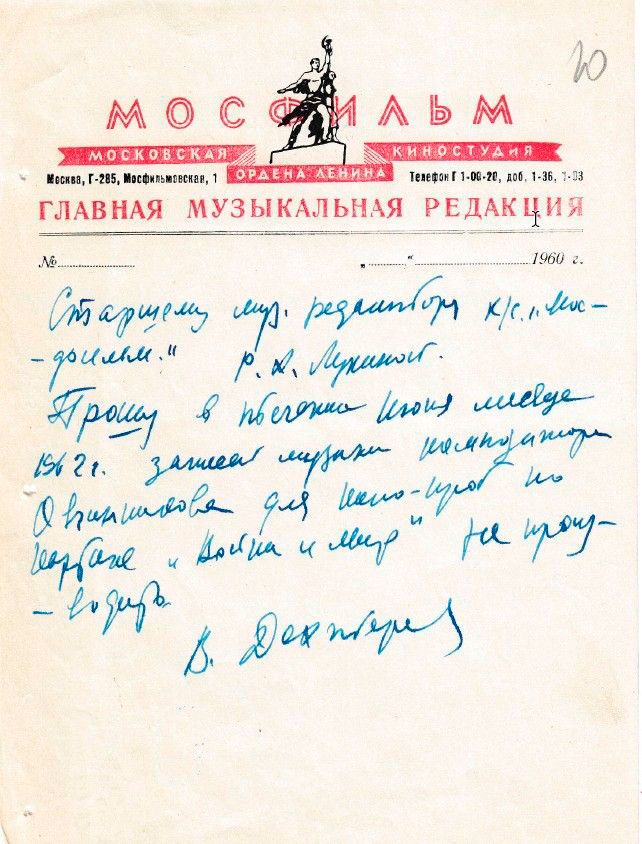 20
МОСФИЛЬМ
МОСКОВСКАЯ КИНОСТУДИЯ
ОРДЕНА ЛЕНИНА
Москва, Г-285, Мосфильмовская, 1 Телефон Г 1-00-20, доб. 1-36, 1-03
ГЛАВНАЯ МУЗЫКАЛЬНАЯ РЕДАКЦИЯ
№ „ “ 1960 г.
Старшему муз. редактору к/с. „Мос-
-фильм." Р. А. Лукиной.
Прошу в течении июня месяца
1962 г. записей музыки композитора
Овчинникова для кино-проб по
картине „Война и мир" не произ-
-водить.
В. Дехтерев